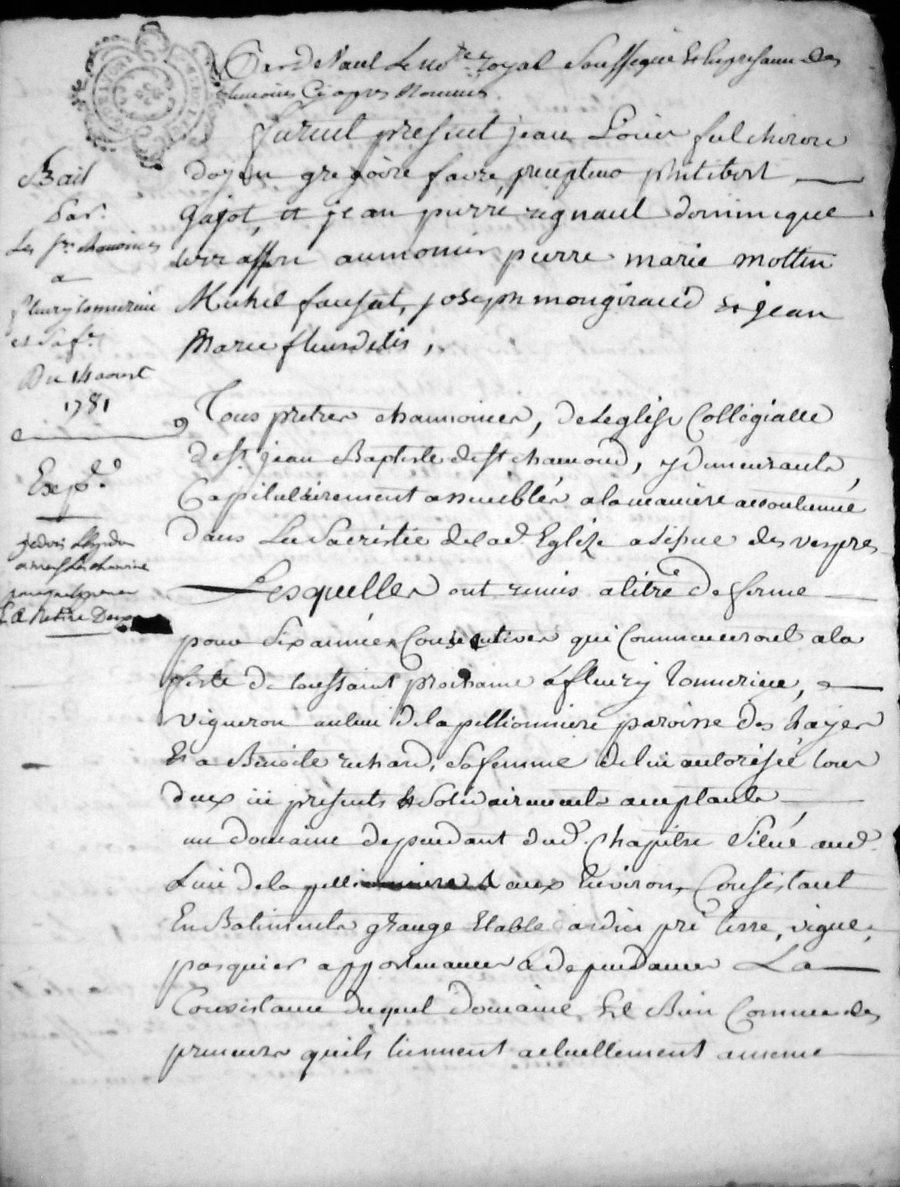 Pardevant Le no.re Royal Soussigné Et En presance des
temoins Cy apres Nommés
furent present jean Louis fulchiron
doyen gregoire favre, precepteur philibert
Gajot, et jean pierre regnaut dominique
aumonier pierre marie mottin
Michel jausat, joseph mongiraud et jean
Marie fleurdelis,
Tous pretres chanoines, de Leglise Collegialle
de St. jean Baptiste de St chamond, y demeurants
Capitulairement assemblés a la maniere accoutumée
dans La Sacristie de lad. Eglize a l'issue des vespres
Lesquelles ont remis a titre de ferme
pour Six années Consecutives qui Commenceront a la
feste de toussaint prochaine a fleury
vigneron au lieu de la pillionniere paroisse des hayes
Et a Benoite richard, Sa femme de lui autorisée tous
deux ici presents et Solidairement acceptants
un domaine dependant dud. Chapitre Situé aud.
Lieu de la aux Environs, Consistant
En Batiments grange Etable jardin pré terre, vigne,
pasquier appartenances & dependances La
Consistance duquel domaine Et Bien Comme les
preneurs qu'ils tiennent actuellement a meme
Bail
Par.
Les Srs. chanoines
a
fleury
et Sa fe.
Du 14 aoust
1781
Exp.d